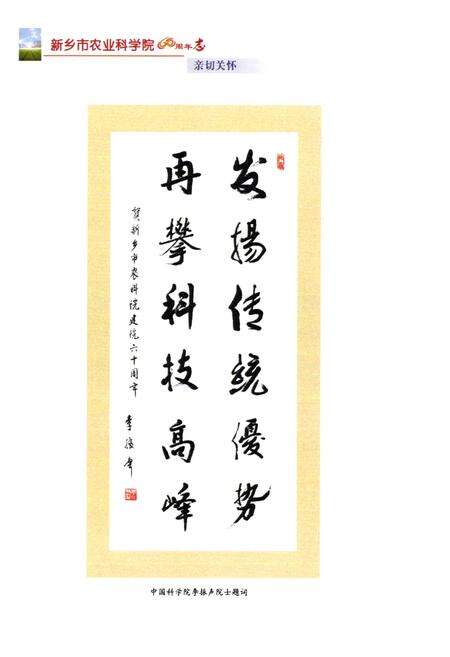 新乡市农业科学院60周年志
亲切关怀
发揚传統優势
再攀科技高峰
贺新乡市农科院建院六十周年
李振声
中国科学院李振声院士题词